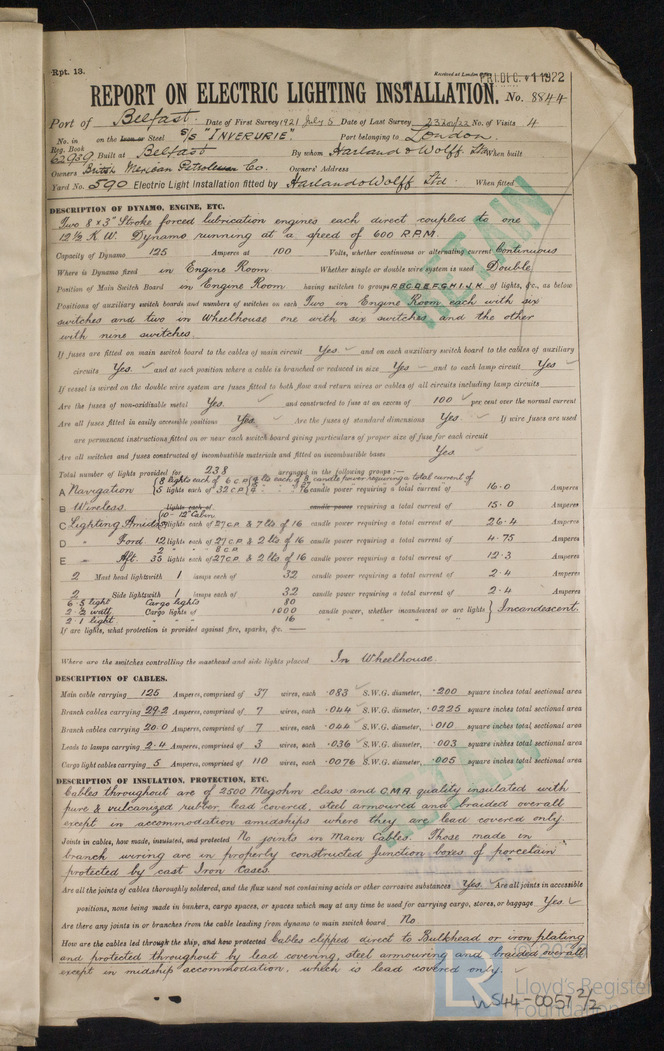 Rpt. 13.
Received at London
FRI. DEC. 1 1922
REPORT ON ELECTRIC LIGHTING INSTALLATION. No. 8844
Port of Belfast. Date of First Survey 1921 July 5 Date of Last Survey No. of Visits 4
No. in Reg. Book 62939 on the Iron or Steel S/S "INVERURIE". Port belonging to London.
Built at Belfast By whom Harland & Wolff Ltd When built
Owners British Mexican Petroleum Co. Owners' Address
Yard No. 590 Electric Light Installation fitted by Harland & Wolff Ltd. When fitted
DESCRIPTION OF DYNAMO, ENGINE, ETC.
Two 8 x 3" Stroke forced lubrication engines each direct coupled to one
12½ K.W. Dynamo running at a speed of 600 R.P.M.
Capacity of Dynamo 125 Amperes at 100 Volts, whether continuous or alternating current Continuous
Where is Dynamo fixed in Engine Room Whether single or double wire system is used Double
Position of Main Switch Board in Engine Room having switches to groups A B C D E F G H I J K of lights, &c., as below
Positions of auxiliary switch boards and numbers of switches on each Two in Engine Room each with six
switches and two in Wheelhouse one with six switches and the other
with nine switches.
If fuses are fitted on main switch board to the cables of main circuit Yes and on each auxiliary switch board to the cables of auxiliary
circuits Yes and at each position where a cable is branched or reduced in size Yes and to each lamp circuit Yes
If vessel is wired on the double wire system are fuses fitted to both flow and return wires or cables of all circuits including lamp circuits
Are the fuses of non-oxidizable metal Yes and constructed to fuse at an excess of 100 per cent over the normal current
Are all fuses fitted in easily accessible positions Yes Are the fuses of standard dimensions Yes If wire fuses are used
are permanent instructions fitted on or near each switch board giving particulars of proper size of fuse for each circuit
Are all switches and fuses constructed of incombustible materials and fitted on incombustible bases Yes
Total number of lights provided for 238 arranged in the following groups :—
A Navigation 8 lights each of 6 C.P. 5 lights each of 32 C.P. candle power requiring a total current of 16.0 Amperes
B Wireless lights each of candle power requiring a total current of 15.0 Amperes
C Lighting Amids lights each of 27 C.P. & 7 lts of 16 candle power requiring a total current of 26.4 Amperes
D " Ford 12 lights each of 27 C.P. & 2 lts of 16 candle power requiring a total current of 4.75 Amperes
2 " " 8 C.P.
E " Aft. 35 lights each of 27 C.P. & 2 lts of 16 candle power requiring a total current of 12.3 Amperes
2 Mast head lights with 1 lamps each of 32 candle power requiring a total current of 2.4 Amperes
2 Side lights with 1 lamps each of 32 candle power requiring a total current of 2.4 Amperes
6 - 5 light Cargo lights 80
Cargo lights of 1000 candle power, whether incandescent or arc lights Incandescent.
2 - 1 light " " " 16
If arc lights, what protection is provided against fire, sparks, &c. —
Where are the switches controlling the masthead and side lights placed In Wheelhouse.
DESCRIPTION OF CABLES.
Main cable carrying 125 Amperes, comprised of 37 wires, each .083 S.W.G. diameter, .200 square inches total sectional area
Branch cables carrying 29.2 Amperes, comprised of 7 wires, each .044 S.W.G. diameter, .0225 square inches total sectional area
Branch cables carrying 20.0 Amperes, comprised of 7 wires, each .044 S.W.G. diameter, .010 square inches total sectional area
Leads to lamps carrying 2.4 Amperes, comprised of 3 wires, each .036 S.W.G. diameter, .003 square inches total sectional area
Cargo light cables carrying 5 Amperes, comprised of 110 wires, each .0076 S.W.G. diameter, .005 square inches total sectional area
DESCRIPTION OF INSULATION, PROTECTION, ETC.
Cables throughout are of 2500 Megohm class and C.M.A. quality insulated with
pure & vulcanized rubber, lead covered, steel armoured and braided overall
except in accommodation amidships where they are lead covered only.
Joints in cables, how made, insulated, and protected No joints in Main Cables. Those made in
branch wiring are in properly constructed Junction boxes of porcelain
protected by cast Iron Cases.
Are all the joints of cables thoroughly soldered, and the flux used not containing acids or other corrosive substances Yes Are all joints in accessible
positions, none being made in bunkers, cargo spaces, or spaces which may at any time be used for carrying cargo, stores, or baggage Yes
Are there any joints in or branches from the cable leading from dynamo to main switch board No
How are the cables led through the ship, and how protected Cables clipped direct to Bulkhead or iron plating
and protected throughout by lead covering, steel armouring and braided overall
except in midship accommodation, which is lead covered only.
RETAIN
RETAIN
LR
© 2020
Lloyd's Register
Foundation
WS44-0057 2/2